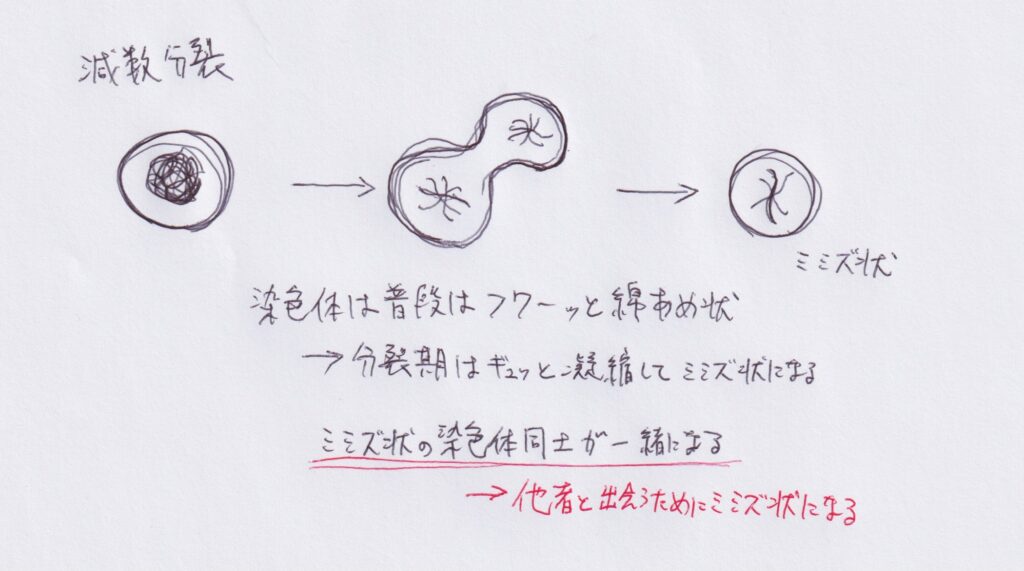 減数分裂
ミミズ状
染色体は普段はフワーッと綿あめ状
→分裂期はギュッと凝縮してミミズ状になる
ミミズ状の染色体同士が一緒になる
→他者と出会うためにミミズ状になる